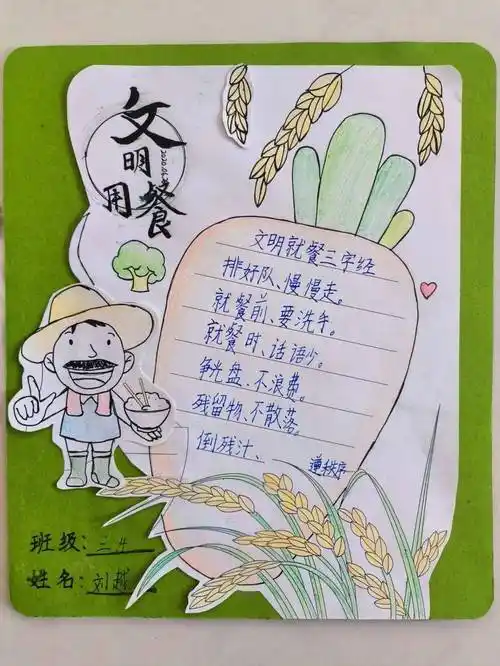 文明
用餐
文明就餐三字经
排好队、慢慢走。
就餐前、要洗手。
就餐时、话语少。
争光盘、不浪费。
残留物、不散落。
倒残汁、遵秩序
班级：三4
姓名：刘越